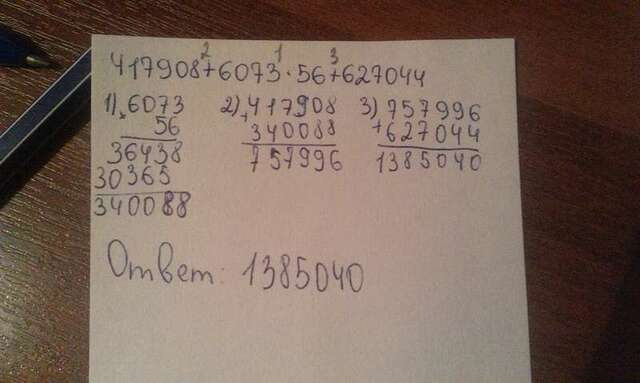 2 1 3
417908+6073·56+627044
1) 6073 2) 417908 3) 757996
× 56 + 340088 + 627044
36438 757996 1385040
30365
340088
Ответ: 1385040